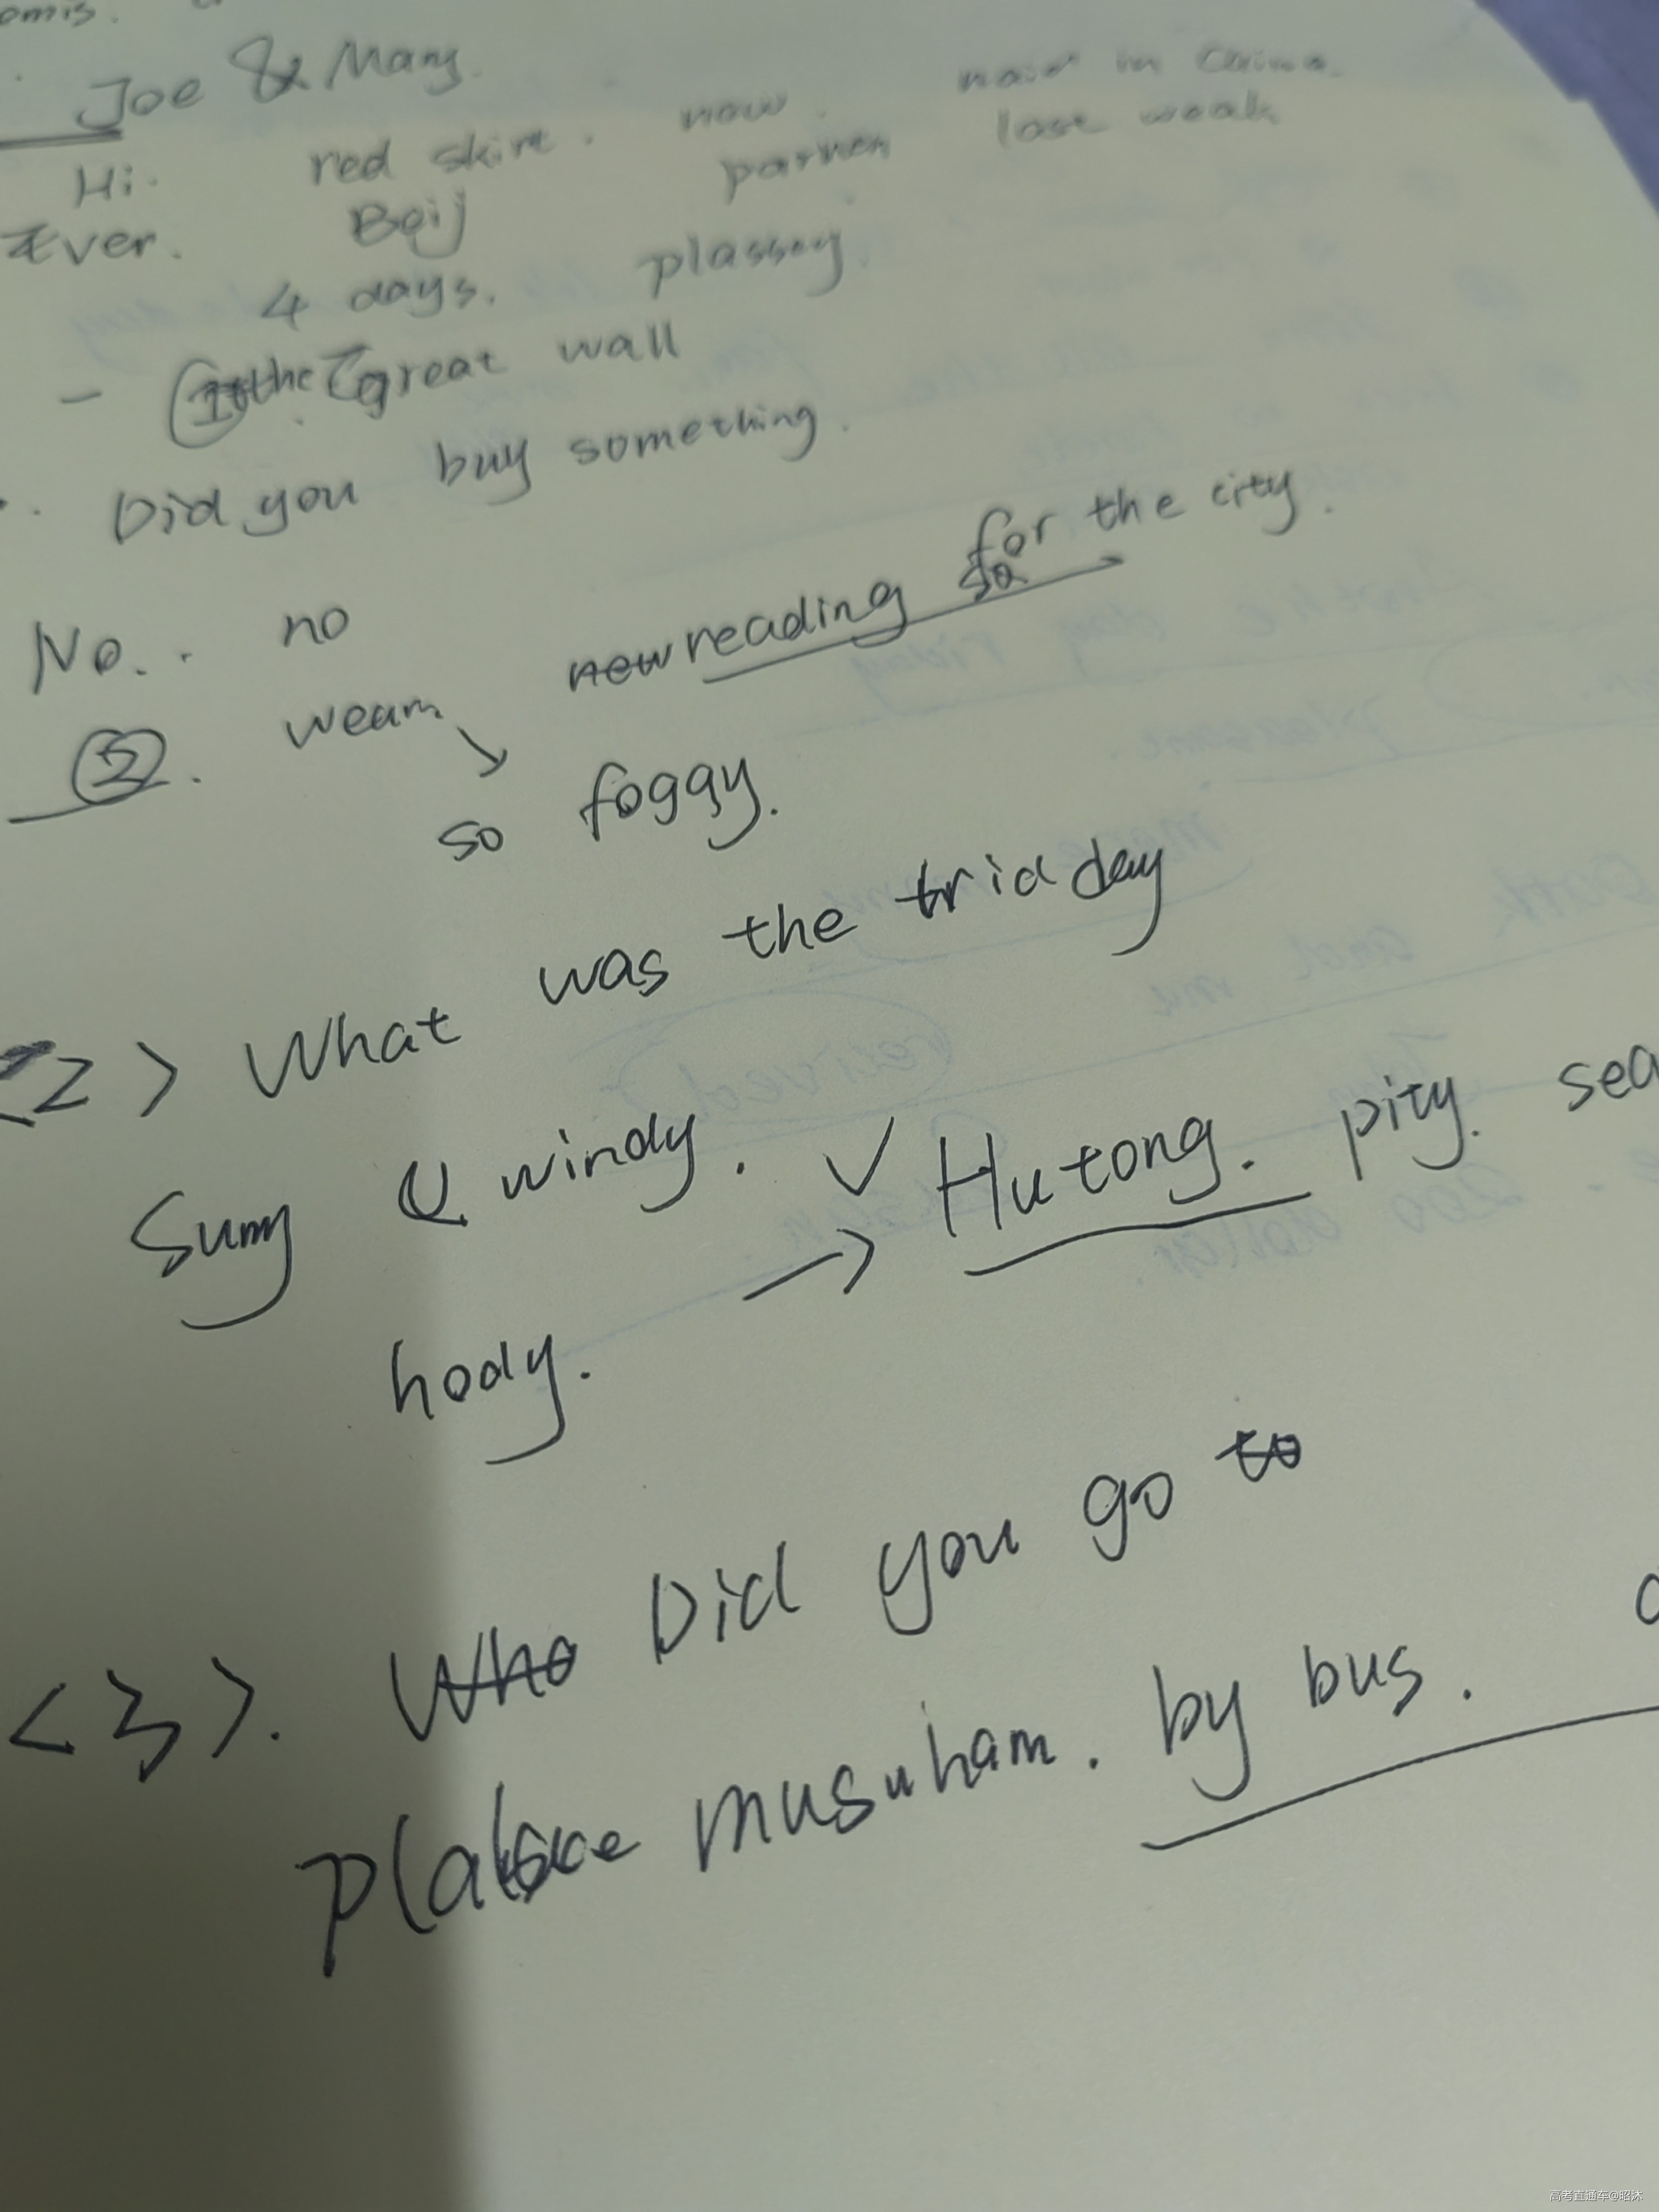 omis.
Joe & Mary.
Hi. red skirt. now. in China.
Ever. Beij last weak
4 days. plassey.
- the great wall
Did you buy something.
No.. no new reading for the city.
②. weam
so foggy.
<2> What was the trid day
Sumy & windy. ✓ Hutong. pity. sea
hody. →
<3>. Who Did you go to
Platske musuham. by bus.
高考直通车@昭沐